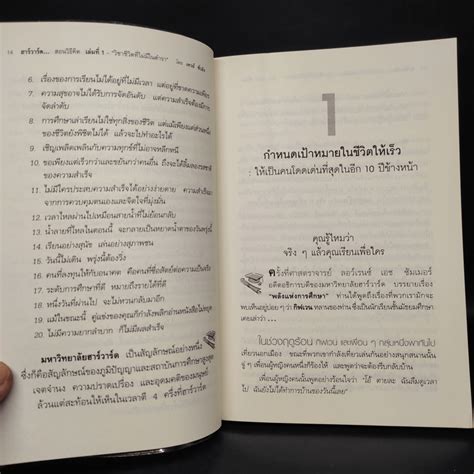 14 ฮาร์วาร์ด... สอนวิธีคิด เล่มที่ 1 - "วิชาชีวิตที่ไม่มีในตำรา"
6. เรื่องของการเรียนไม่ได้อยู่ที่ไม่มีเวลา แต่อยู่ที่ขาดความเพียร
7. ความสุขอาจไม่ได้รับการจัดอันดับ แต่ความสำเร็จต้องมีการ
จัดลำดับ
8. การศึกษาเล่าเรียนไม่ใช่ทุกสิ่งของชีวิต แต่แม้เพียงแค่ส่วนหนึ่ง
ของชีวิตยังพิชิตไม่ได้ แล้วจะไปทำอะไรได้
9. เชิญเพลิดเพลินกับความทุกข์ที่ไม่อาจหลีกหนี
10. ขอเพียงแค่เร็วกว่าและขยันกว่าคนอื่น ถึงจะได้ลิ้มลองรสชาติ
ของความสำเร็จ
11. ไม่มีใครประสบความสำเร็จได้อย่างง่ายดาย ความสำเร็จมา
จากการควบคุมตนเองและจิตใจที่มุ่งมั่น
12. เวลาไหลผ่านไปเหมือนสายน้ำที่ไม่ย้อนกลับ
13. น้ำลายที่ไหลในตอนนี้ จะกลายเป็นหยาดน้ำตาของวันพรุ่งนี้
14. เรียนอย่างสุนัข เล่นอย่างสุภาพชน
15. วันนี้ไม่เดิน พรุ่งนี้ต้องวิ่ง
16. คนที่ลงทุนให้กับอนาคต คือคนที่ซื่อสัตย์ต่อความเป็นจริง
17. ระดับการศึกษาที่ดี หมายถึงรายได้ที่ดี
18. หนึ่งวันที่ผ่านไป จะไม่หวนกลับมาอีก
19.
20. ไม่มีความยากลำบาก ก็ไม่มีผลสำเร็จ
มหาวิทยาลัยฮาร์วาร์ด เป็นสัญลักษณ์อย่างหนึ่ง
ซึ่งก็คือสัญลักษณ์ของภูมิปัญญาและสถาบันการศึกษาสูงสุด
เจตจำนง ความปราดเปรื่อง และอุดมคติของมนุษย์
ล้วนแต่สะท้อนให้เห็นในเวลาตี 4 ครึ่งที่ฮาร์วาร์ด
1
กำหนดเป้าหมายในชีวิตให้เร็ว
: ให้เป็นคนโดดเด่นที่สุดในอีก 10 ปีข้างหน้า
คุณรู้ไหมว่า
จริง ๆ แล้วคุณเรียนเพื่อใคร
ครั้งที่ศาสตราจารย์ ลอว์เรนซ์ เอช ซัมเมอร์
อดีตอธิการบดีของมหาวิทยาลัยฮาร์วาร์ด บรรยายเรื่อง
"พลังแห่งการศึกษา" ท่านได้พูดถึงเรื่องที่พวกเรามักจะ
พบเห็นอยู่บ่อย ๆ ว่า กิฟเวน ซึ่งเป็นนักเรียนชั้นมัธยมศึกษา
เคยเล่าว่า ...
ในช่วงฤดูร้อน กิฟเวน และเพื่อน ๆ กลุ่มหนึ่งพากันไป
เที่ยวนอกเมือง ขณะที่พวกเขากำลังเที่ยวเล่นกันอย่างสนุกสนานนั้น
จู่ ๆ เพื่อนผู้หญิงคนหนึ่งก็ร้องไห้ และพูดว่าจะต้องรีบกลับบ้าน
เพื่อนผู้หญิงคนนั้นพูดอย่างร้อนใจว่า "โอ๊ ตายละ ฉันลืมดูเวลา
ไป ฉันยังไม่ได้ทำการบ้านของวันนี้เลย"